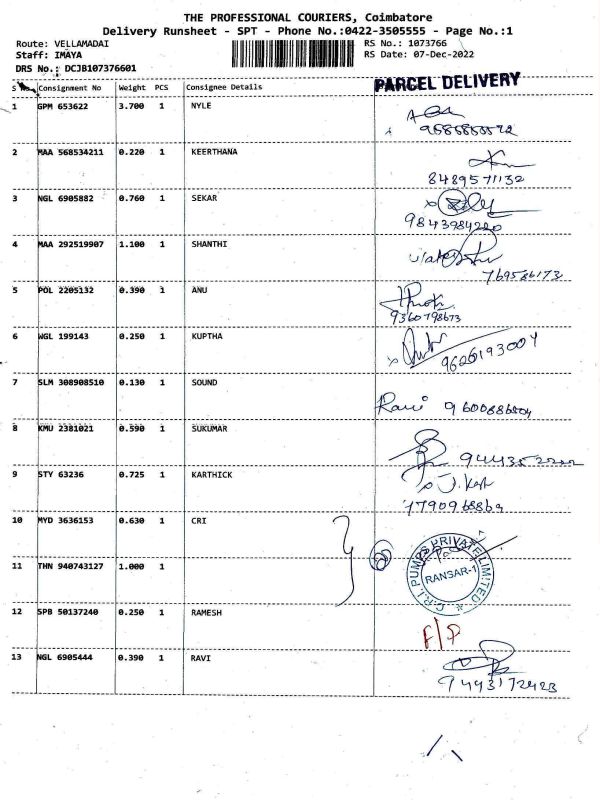 THE PROFESSIONAL COURIERS, Coimbatore
Delivery Runsheet - SPT - Phone No.:0422-3505555 - Page No.:1
Route: VELLAMADAI RS No.: 1073766
Staff: IMAYA RS Date: 07-Dec-2022
DRS No.: DCJB107376601
PARCEL DELIVERY
S No. Consignment No Weight PCS Consignee Details
1 GPM 653622 3.700 1 NYLE
2 MAA 568534211 0.220 1 KEERTHANA
8489571132
3 NGL 6905882 0.760 1 SEKAR
9843984220
4 MAA 292519907 1.100 1 SHANTHI
769586173
5 POL 2205132 0.390 1 ANU
9360798673
6 WGL 199143 0.250 1 KUPTHA
9626193004
7 SLM 308908510 0.130 1 SOUND
Ravi
8 KMU 2381021 0.590 1 SUKUMAR
9 STY 63236 0.725 1 KARTHICK
10 MYD 3636153 0.630 1 CRI
C.R.I PUMPS PRIVATE LIMITED
RANSAR-1
11 THN 940743127 1.000 1
12 SPB 50137240 0.250 1 RAMESH
F/P
13 NGL 6905444 0.390 1 RAVI
9443172423